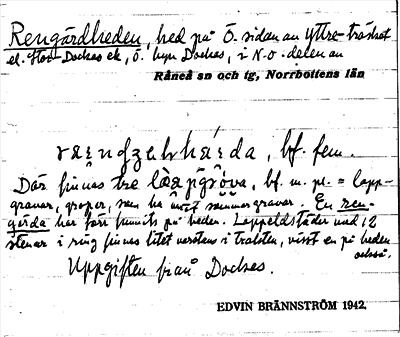 Rengärdheden, hed på Ö. sidan av Yttre-träsket
el. Stor-Dockas ek, Ö. byn Dockas, i N.O. delen av
Råneå sn och tg, Norrbottens län
bf. fem.
Där finnas tre bf. m. pl. = lapp-
gravar, gropar, sen ha varit gravar. En ren-
gärda har förr funnits på heden. Lappeldstäder med 12
stenar i ring finnas litet varstans i trakten, visst en på heden
också.
Uppgiften från Dockas.
EDVIN BRÄNNSTRÖM 1942.